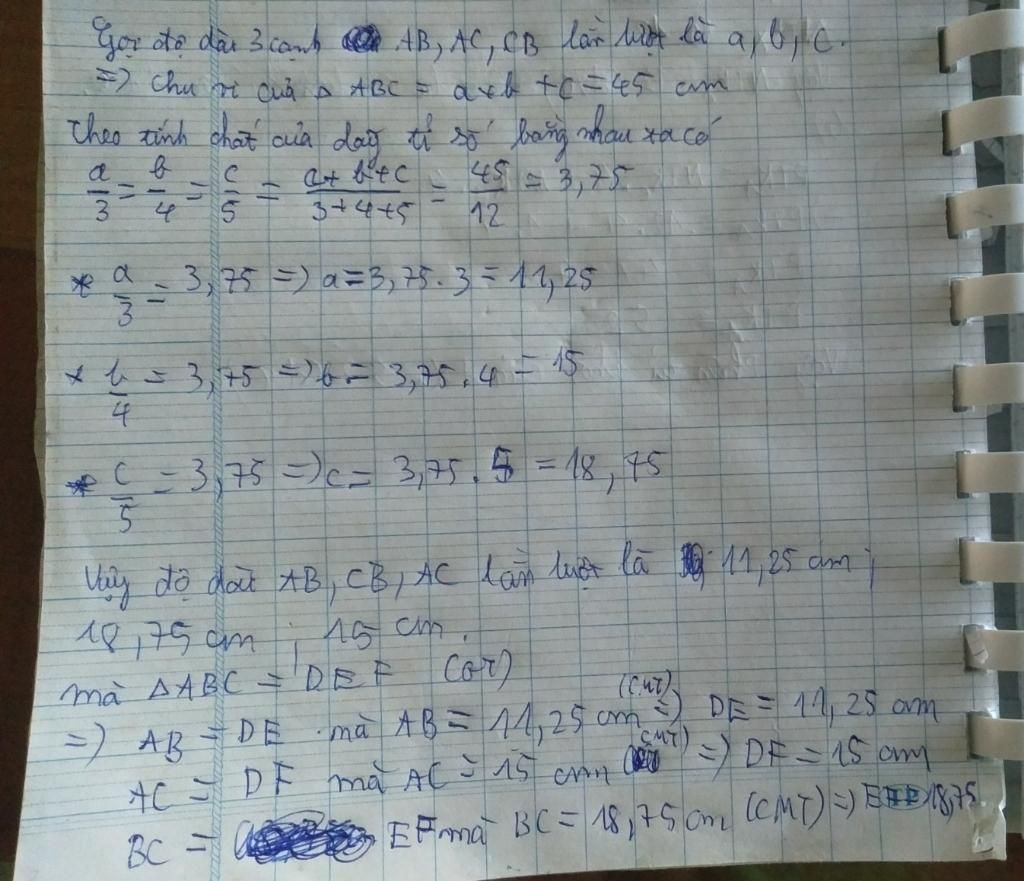 Gọi độ dài 3 cạnh AB, AC, CB lần lượt là a, b, c.
=> Chu vi của Δ ABC = a+b +c = 45 cm
Theo tính chất của dãy tỉ số bằng nhau ta có
a/3 = b/4 = c/5 = (a+b+c)/(3+4+5) = 45/12 = 3,75
* a/3 = 3,75 => a = 3,75 . 3 = 11,25
* b/4 = 3,75 => b = 3,75 . 4 = 15
* c/5 = 3,75 => c = 3,75 . 5 = 18,75
Vậy độ dài AB, CB, AC lần lượt là 11,25 cm ;
18,75 cm ; 15 cm.
mà Δ ABC = DEF (GT)
=> AB = DE mà AB = 11,25 cm (CMT) => DE = 11,25 cm
AC = DF mà AC = 15 cm (CMT) => DF = 15 cm
BC = EF mà BC = 18,75 cm (CMT) => EF = 18,75